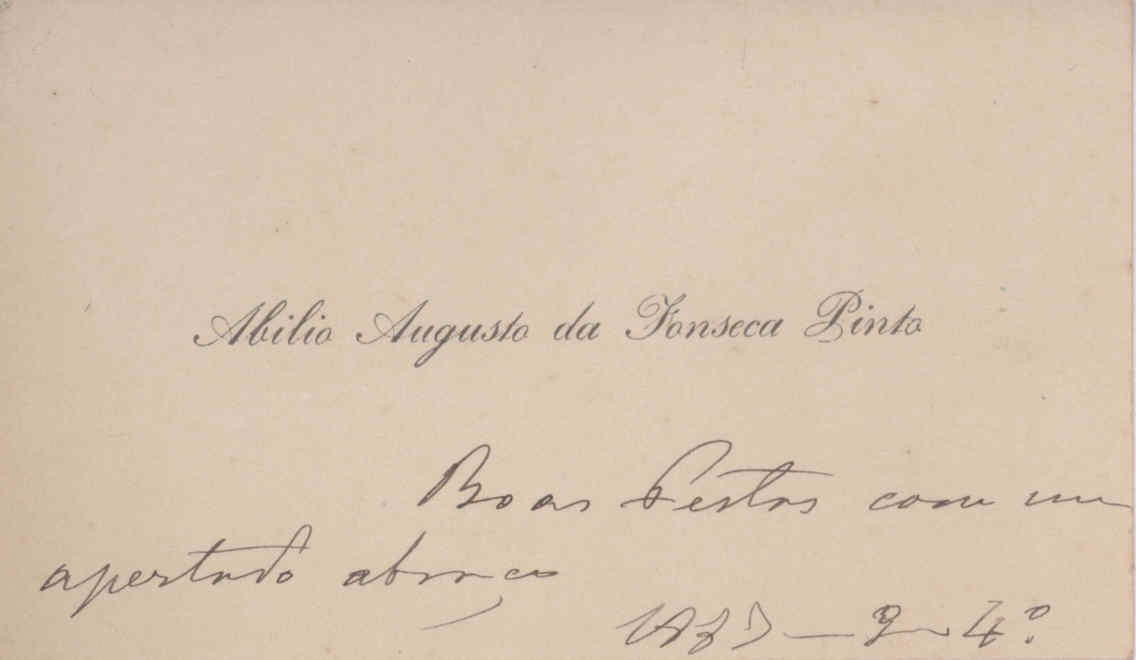 Abilio Augusto da Fonseca Pinto
Boas Festas com um
apertado abraço